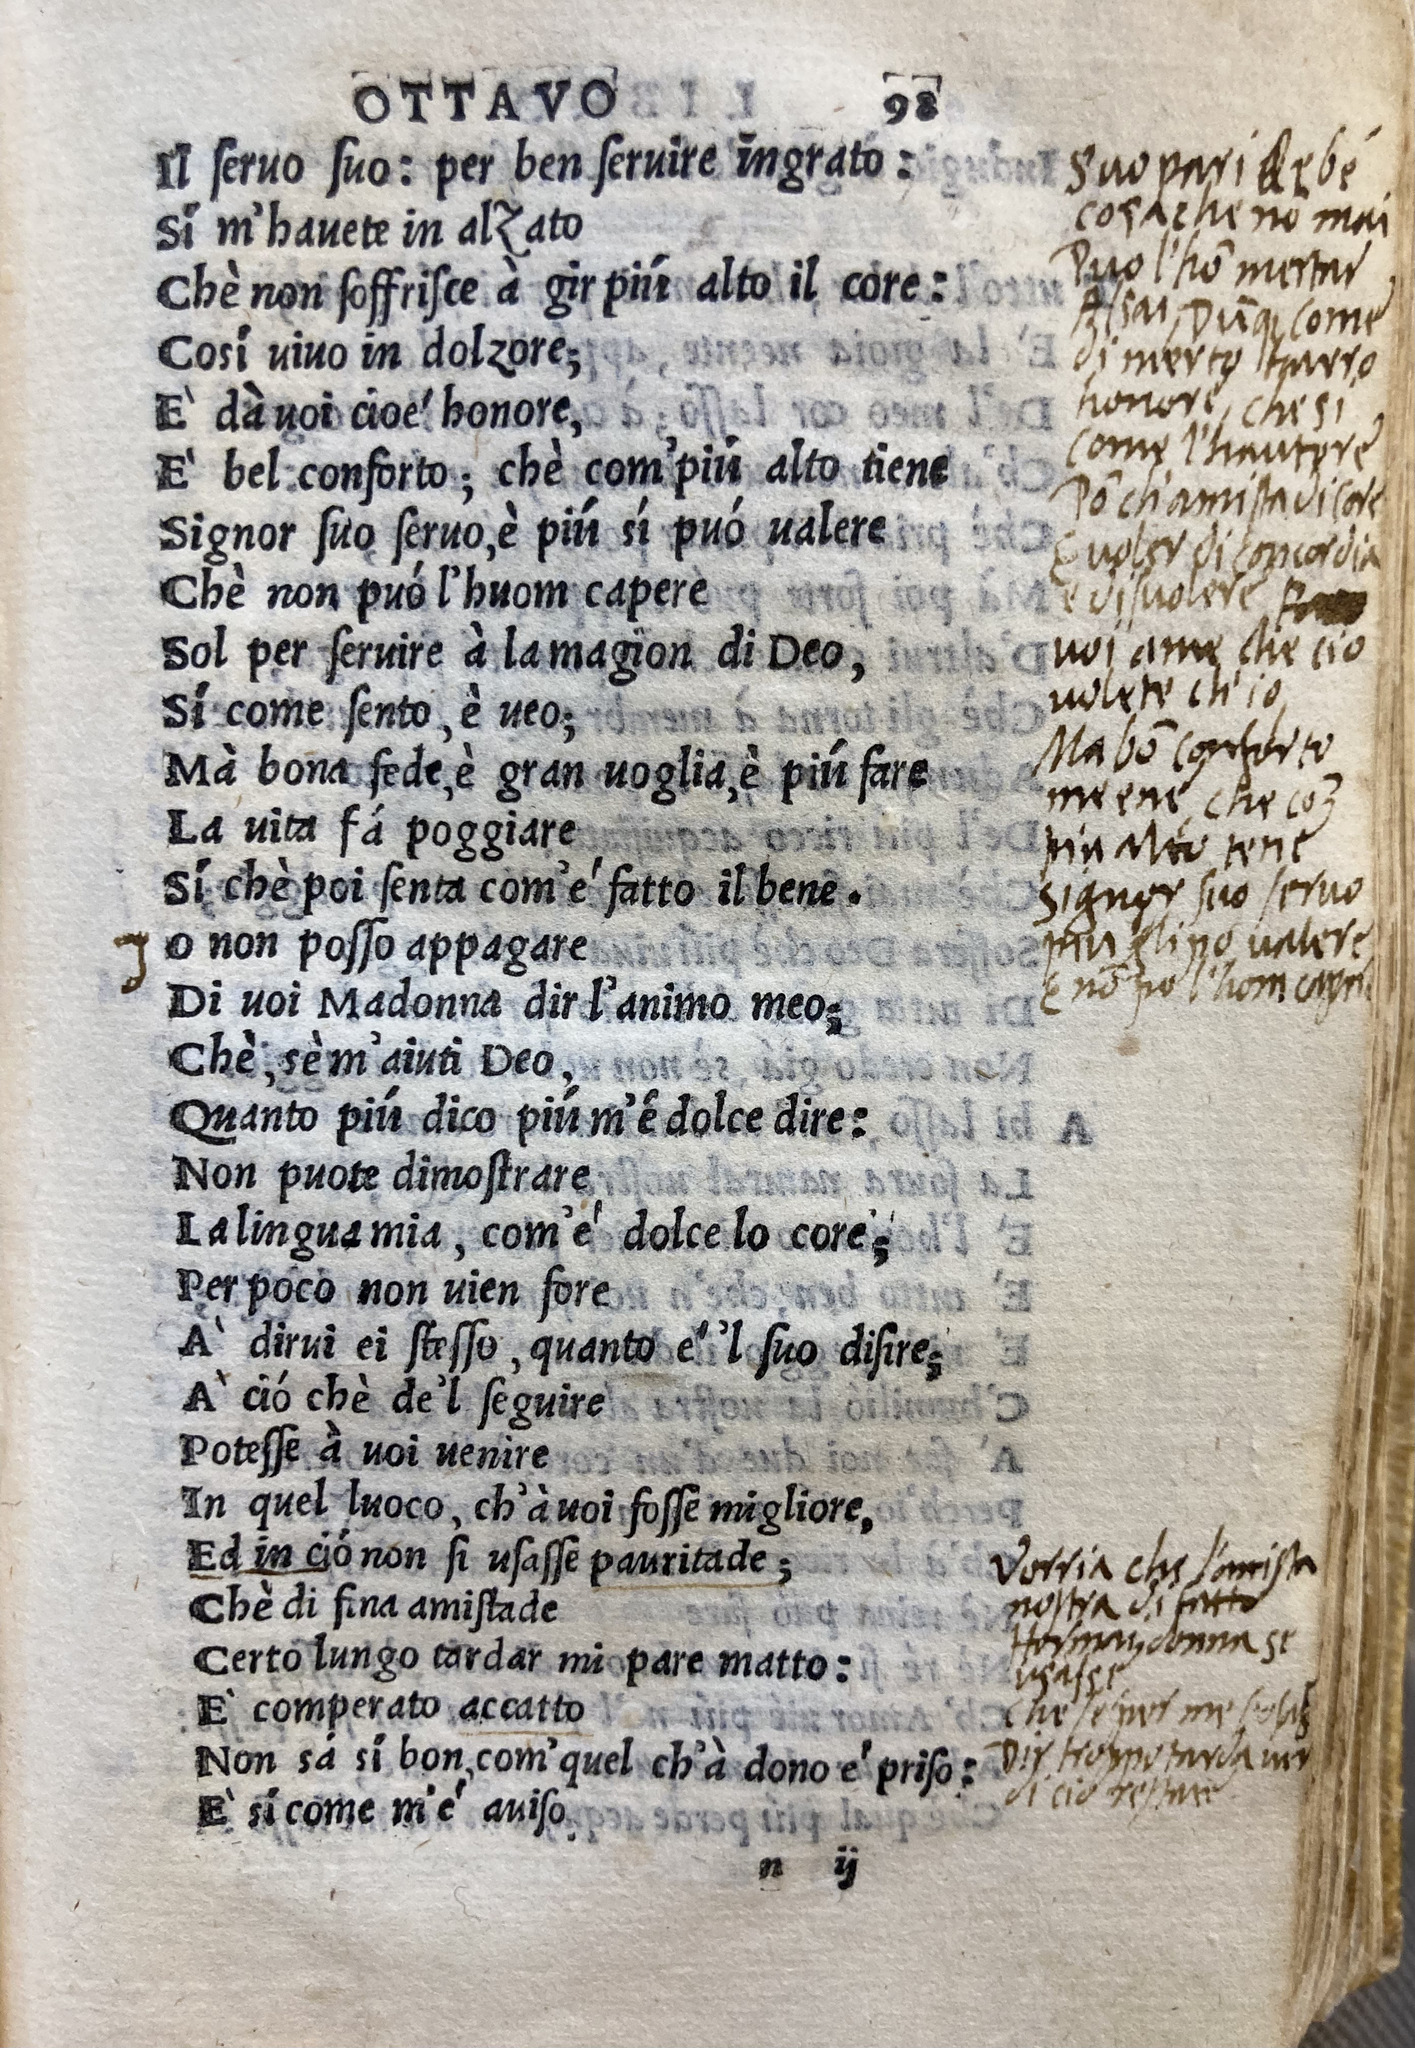 OTTAVO 98
Il ſeruo ſuo: per ben ſeruire ingrato:
Sí m'hauete in alzato
Chè non ſoffriſce à gir piú alto il core:
Cosí uiuo in dolzore;
E` dà uoi cioé honore,
E` bel conforto; chè com'piú alto tiene
Signor ſuo ſeruo, è piú sí puó ualere
Chè non puó l'huom capere
Sol per ſeruire à la magion di Deo,
Sí come ſento, è ueo;
Mà bona fede, è gran uoglia, è piú fare
La uita fá poggiare
Sí chè poi ſenta com'é fatto il bene.
I o non poſſo appagare
Di uoi Madonna dir l'animo meo;
Chè, sè m'aiuti Deo,
Quanto piú dico piú m'é dolce dire:
Non puote dimoſtrare
La lingua mia, com'é dolce lo core;
Per poco non uien fore
A` dirui ei ſteſſo, quanto é 'l ſuo diſire;
A` ció chè de'l ſeguire
Poteſſe à uoi uenire
In quel luoco, ch'à uoi foſſe migliore,
Ed in ció non ſi uſaſſe pauritade;
Chè di fina amiſtade
Certo lungo tardar mi pare matto:
E` comperato accatto
Non sá sí bon, com'quel ch'à dono é priſo:
E` sí come m'é auiſo
n ij
Suo pari
cosa che nō mai
Puo l'hō mertar
Assai, Dūq come
di merto
honore, che si
come l'hautore
Pō ch'amista di core
E uoler di concordia
e disuolere
uoi ame che cio
uolete ch'io
Ma bō conforto
mene, che
piu alto tene
Signor suo seruo
piu po ualere
E nō po l'hom
Vorria che l'amista
nostra di fatto
donna se
usasse
che se per me
Dir troppo tarda
di cio restare